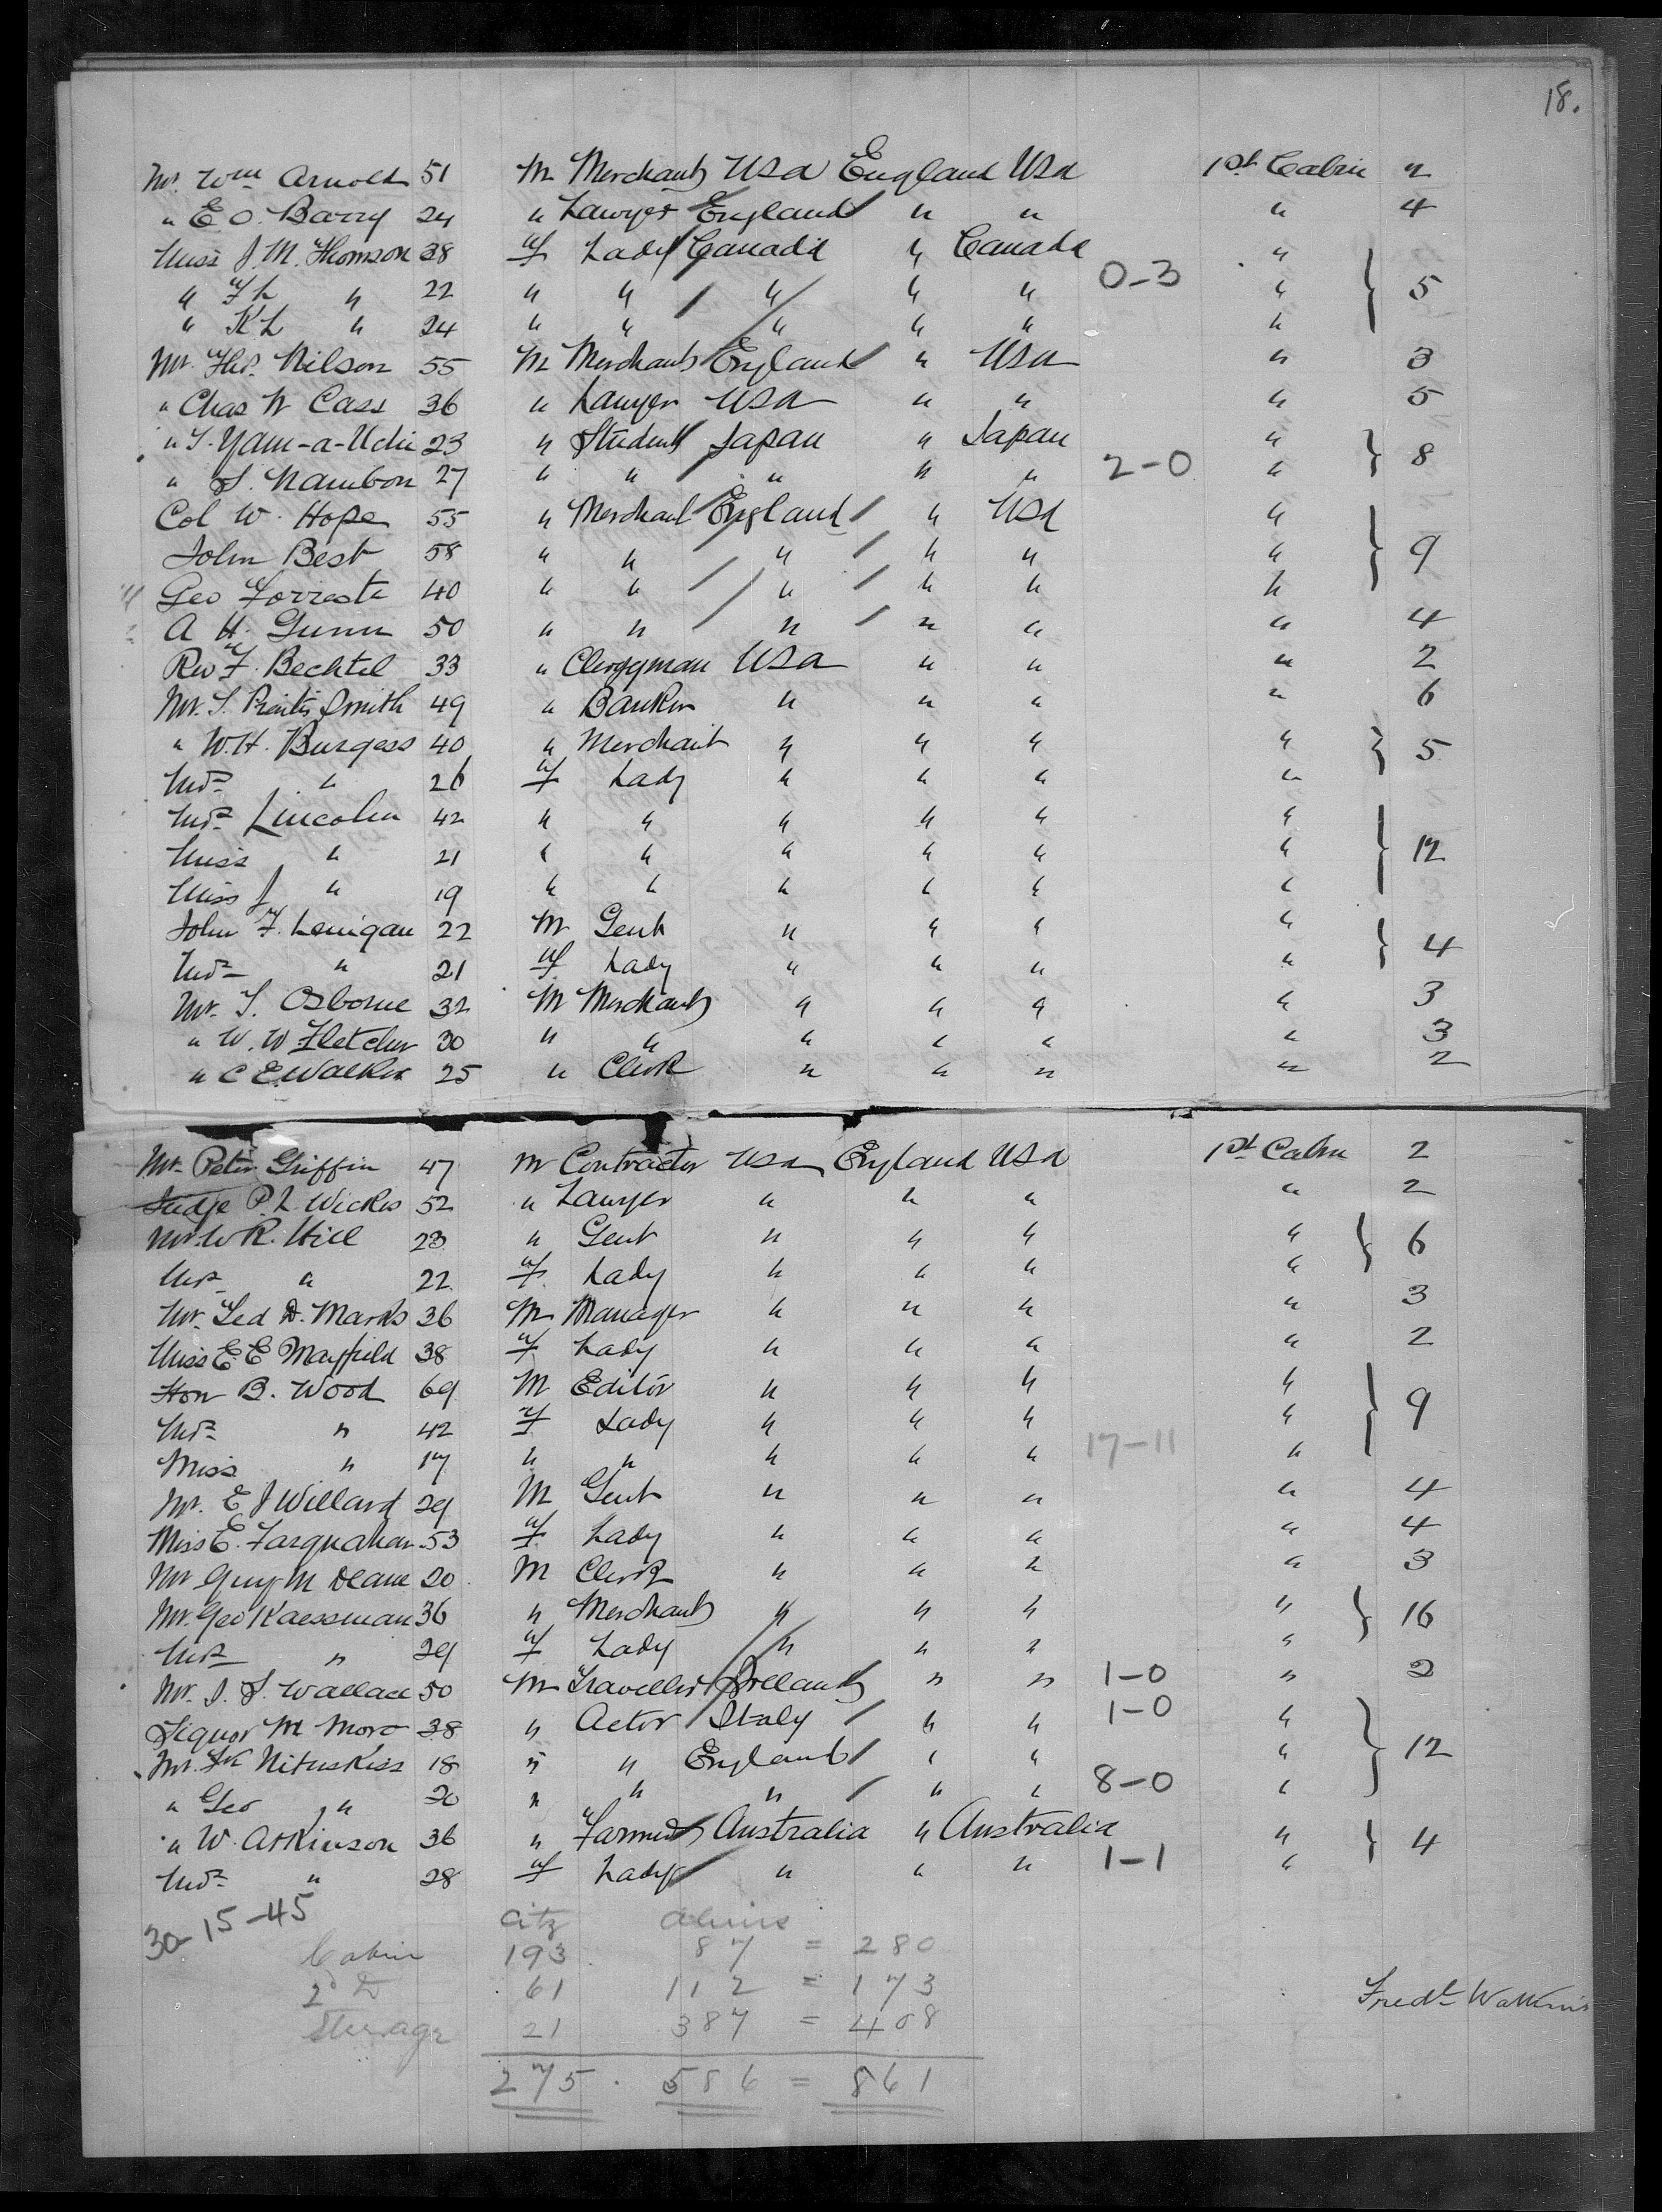 18.
Mr. Wm Arnold 51 M Merchant USA England USA 1st Cabin 2
" E O. Barry 24 " Lawyer England " " " 4
Miss J. M. Thomson 38 f Lady Canada " Canada "
" F L " 22 " " " " " 0-3 " } 5
" K L " 24 " " " " " "
Mr. Thos. Wilson 55 M Merchant England " USA " 3
" Chas W Cass 36 " Lawyer USA " " " 5
" S. Yam-a-Uchi 23 " Student Japan " Japan "
" S. Nambon 27 " " " " " 2-0 " } 8
Col W. Hope 55 " Merchant England " USA "
John Best 58 " " " " " " } 9
Geo Forreste 40 " " " " " "
A H. Gunn 50 " " " " " " 4
Rev F. Bechtel 33 " Clergyman USA " " " 2
Mr. S. Prentis Smith 49 " Banker " " " " 6
" W. H. Burgess 40 " Merchant " " " " } 5
Mrs " 26 f Lady " " " "
Mrs Lincoln 42 " " " " " "
Miss " 21 " " " " " " } 12
Miss J " 19 " " " " " "
John F. Lenigan 22 M Gent " " " " } 4
Mrs " 21 f Lady " " " "
Mr. S. Osborne 32 M Merchant " " " " 3
" W. W Fletcher 30 " " " " " " 3
" C E. Walker 25 " Clerk " " " " 2
Mr. Peter Griffin 47 M Contractor USA England USA 1st Cabin 2
Judge P. L. Wickes 52 " Lawyer " " " " 2
Mr. W R. Hill 23 " Gent " " " " } 6
Mrs " 22 f Lady " " " "
Mr. Ted D. Marks 36 M Manager " " " " 3
Miss E. E Mayfield 38 f Lady " " " " 2
Hon B. Wood 69 M Editor " " " "
Mrs " 42 f Lady " " " " } 9
Miss " 17 " " " " " 17-11 "
Mr. E J Willard 29 M Gent " " " " 4
Miss E. Farquahar 53 f Lady " " " " 4
Mr Guy M Deane 20 M Clerk " " " " 3
Mr. Geo Kaessman 36 " Merchant " " " " } 16
Mrs " 29 f Lady " " " "
Mr. J. S. Wallace 50 M Traveller Ireland " " 1-0 " 2
Signor M Moro 38 " Actor Italy " " 1-0 "
Mr. Fk Nituskiss 18 " " England " " " } 12
" Geo " 20 " " " " " 8-0 "
" W. Atkinson 36 " Farmer Australia " Australia " } 4
Mrs " 28 f Lady " " " 1-1 "
30-15-45
Citz Aliens
Cabin 193 87 = 280
2nd D 61 112 = 173
Steerage 21 387 = 408
275 . 586 = 861
Fredk Watkins